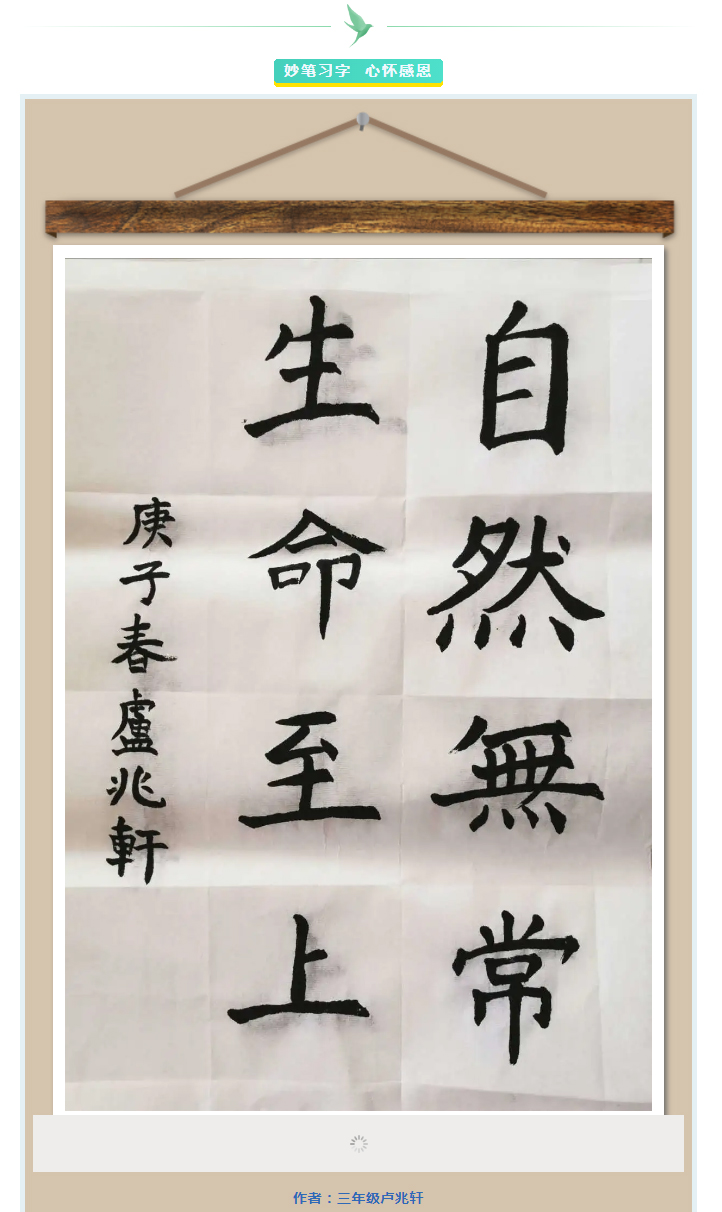 妙笔习字 心怀感恩
自然無常
生命至上
庚子春盧兆軒
作者：三年级卢兆轩